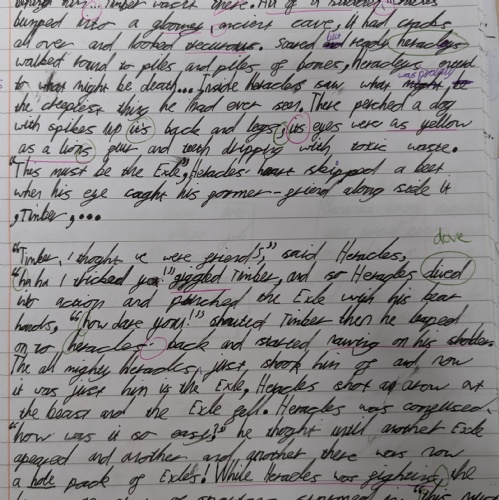 him, Timber wasn't there. All of a sudden, Heracles
bumped into a gloomy, ancient cave, it had cracks
all over and looked Scared but ready heracles
walked round to piles and piles of bones, Heracles
to what might be death... Inside Heracles saw, what was probably
the creepiest thing he had ever seen. There perched a dog
with spikes up it's back and legs, its eyes were as yellow
as a lions and teeth dripping with toxic waste.
"This must be the Exle," Heracles heart skipped a beet
when his eye caught his former-friend along side it
,Timber,...
"Timber, I thoght we were friend's," said Heracles,
dove
"ha ha I tricked you!" giggled Timber, and so Heracles dived
into action and punched the Exle with his bear
hands, "how dare you!" shouted Timber then he leaped
on to heracles back and started on his
The all mighty heracles, just, shook him of and now
it was just him vs the Exle, Heracles shot an arow at
the beast and the Exle fell. Heracles was confused.
"how was it so easy," he thoght until another Exle
apeared and another and another there was now
a hole pack of Exles! While Heracles was fighting, the